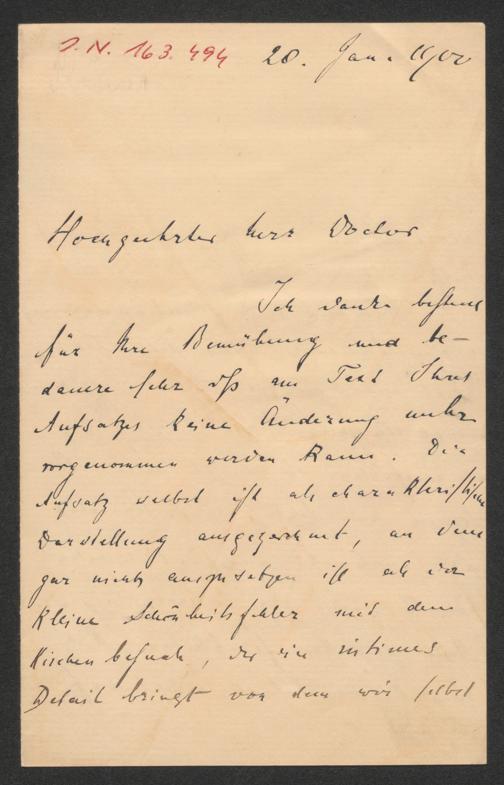 J. N. 163.494
20. Jan. 1900
Hochgeehrter Herr Doctor
Ich danke bestens
für Ihre Bemühung und be-
dauere sehr dß am Text Ihres
Aufsatzes keine Änderung mehr
vorgenommen werden kann. Der
Aufsatz selbst ist als charakteristische
Darstellung ausgezeichnet, an dem
gar nichts auszusetzen ist als der
kleine Schönheitsfehler mit dem
Kirchenbesuch, der ein intimes
Detail bringt von dem wir selbst